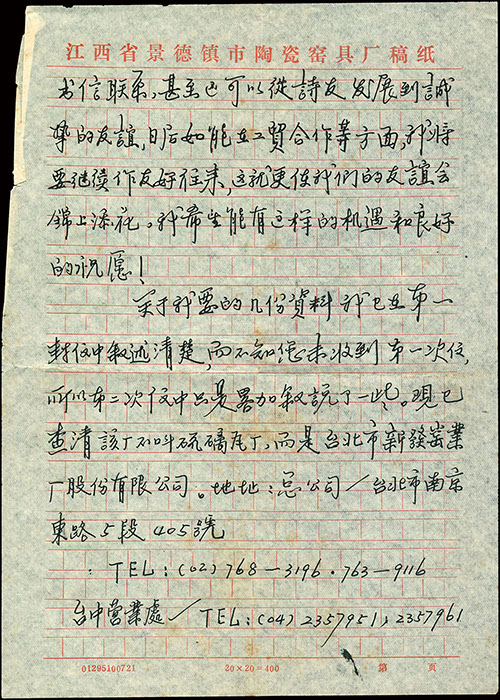 江西省景德镇市陶瓷窑具厂稿纸
书信联系,甚至还可以從詩友发展到誠
挚的友誼,日后如能在工貿合作等方面,我將
要继续作友好往来,这就更使我們的友誼会
锦上添花。我希望能有这样的机遇和良好
的祝愿!
关于我要的几份資料我已在第一
封信中叙述清楚,而不知您未收到第一次信,
所以第二次信中只是畧加叙説了一些。現已
查清該厂不叫硫磷尾厂,而是台北市新發窑業
厂股份有限公司。地址:总公司/台北市南京
東路5段405號
:TEL:(02)768-3196·763-9116
台中营業處/TEL:(04)2357951,2357961
01295100721
20×20=400
第 页